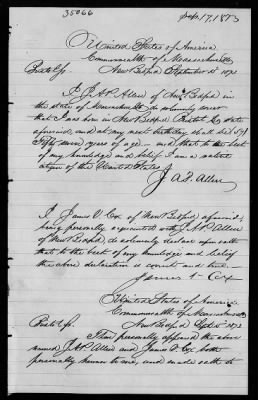 35066
Sept 17, 1873
United States of America
Commonwealth of Massachusetts
Bristol Ss. New Bedford September 15 1873
I J. A. P. Allen of New Bedford in
the state of Massachusetts do solemnly swear
that I was born in New Bedford Bristol Co state
aforesaid and at my next birthday shall be (57)
fifty seven years of age and that to the best
of my knowledge and belief I am a native
of the United States
J A P Allen
I James V. Cox of New Bedford aforesaid
being personally acquainted with J. A. P. Allen
of New Bedford, do solemnly declare upon oath
that to the best of my knowledge and belief
the above declaration is correct and true.
James V. Cox
United States of America
Commonwealth of Massachusetts
Bristol Ss. New Bedford Sept 15 1873
Then personally appeared the above
named J. A. P. Allen and James V. Cox both
personally known to me, and made oath to